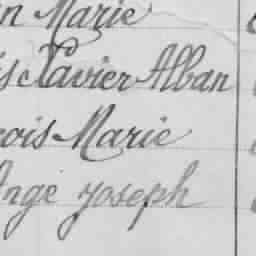 n Marie
is Xavier Alban
cois Marie
Ange Joseph